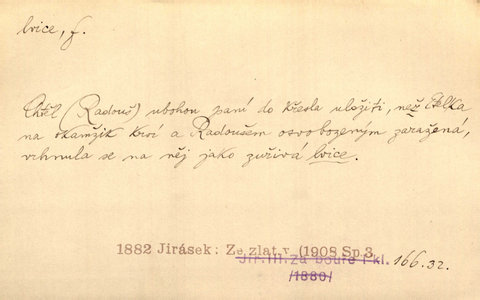 lvice, f.
Chtěl (Radouš) ubohou paní do křesla uložiti, než Etelka
na okamžik krví a Radoušem osvobozeným zaražená,
vrhnula se na něj jako zuřivá lvice.
1882 Jirásek: Ze zlat. v. (1908 Sp.3
Jir.III.Za bouře i kl. 166.32.
/1880/